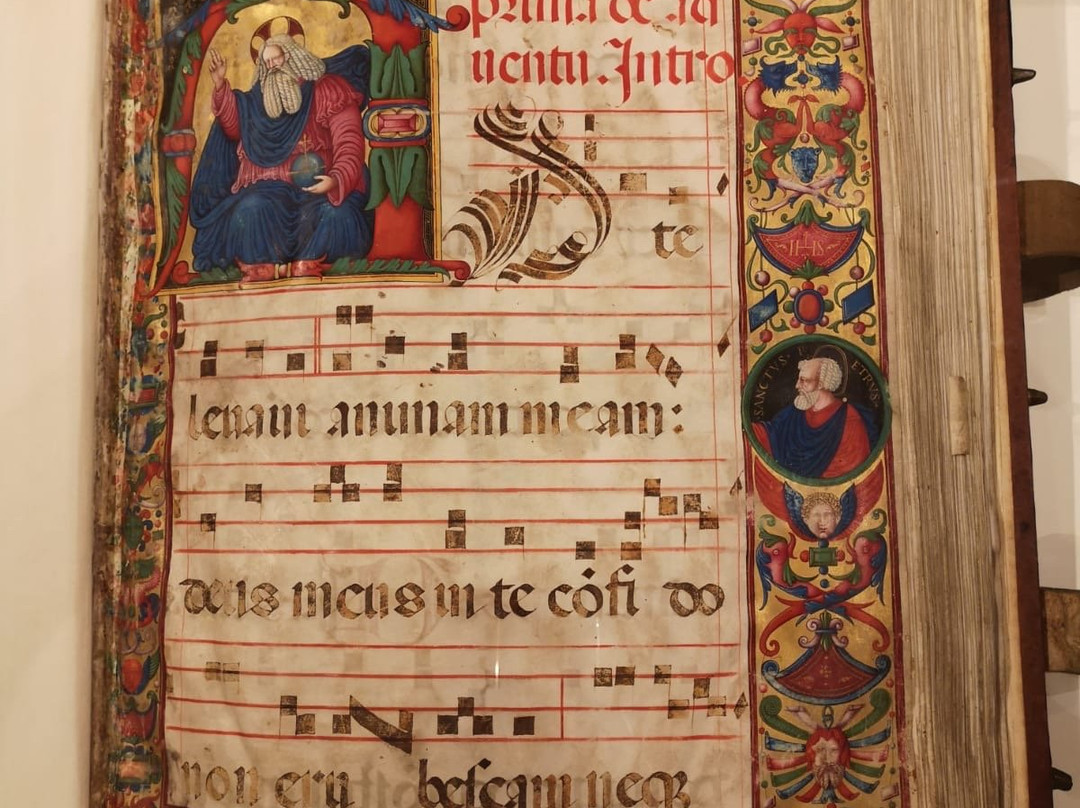 prima de ad
uentu. Intro
te
leuaui animam meam:
IHS
SANCTVS PETRVS
deus meus in te cōfi do
non eru bescam neqȝ